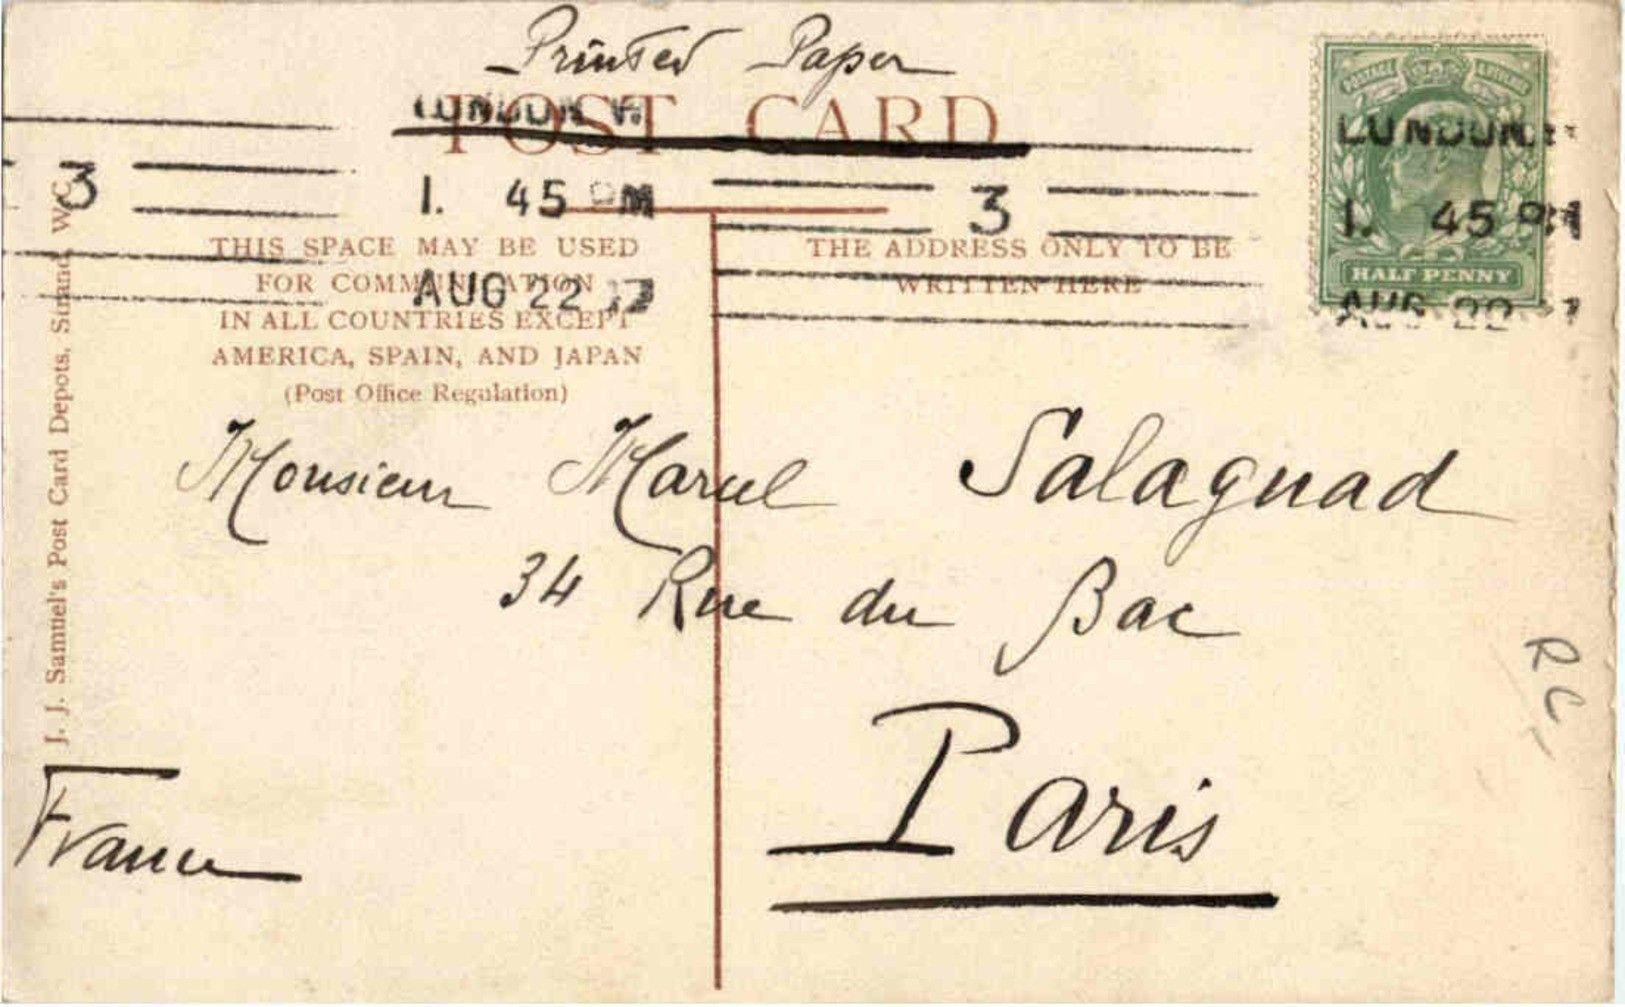 Printed Paper
POST CARD
LONDON. W.
1. 45 PM
3
3
AUG 22
POSTAGE & REVENUE
LONDON. W.
1. 45 PM
HALF PENNY
AUG 22
THIS SPACE MAY BE USED
FOR COMMUNICATION
IN ALL COUNTRIES EXCEPT
AMERICA, SPAIN, AND JAPAN
(Post Office Regulation)
THE ADDRESS ONLY TO BE
WRITTEN HERE
J. J. Samuel's Post Card Depots, Strand, W.C.
Monsieur Marcel Salagnad
34 Rue du Bac
Paris
France
RC